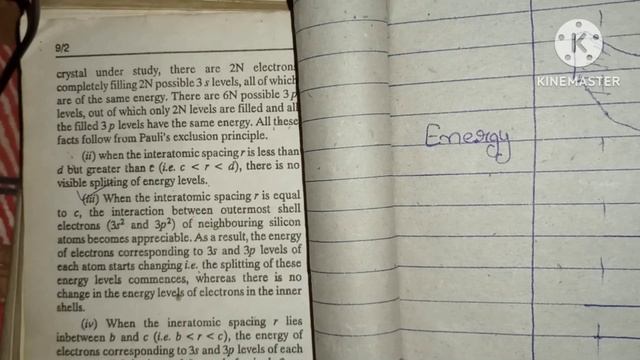 9/2
crystal under study, there are 2N electrons
completely filling 2N possible 3 s levels, all of which
are of the same energy. There are 6N possible 3 p
levels, out of which only 2N levels are filled and all
the filled 3 p levels have the same energy. All these
facts follow from Pauli's exclusion principle.
(ii) when the interatomic spacing r is less than
d but greater than c (i.e. c < r < d), there is no
visible splitting of energy levels.
(iii) When the interatomic spacing r is equal
to c, the interaction between outermost shell
electrons (3s² and 3p²) of neighbouring silicon
atoms becomes appreciable. As a result, the energy
of electrons corresponding to 3s and 3p levels of
each atom starts changing i.e. the splitting of these
energy levels commences, whereas there is no
change in the energy levels of electrons in the inner
shells.
(iv) When the ineratomic spacing r lies
inbetween b and c (i.e. b < r < c), the energy of
electrons corresponding to 3s and 3p levels of each
Energy
K
KINEMASTER